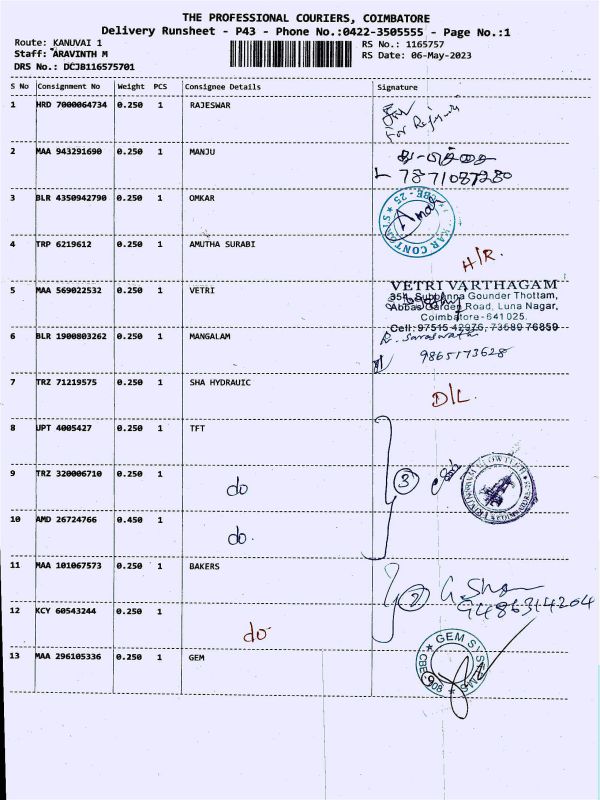 THE PROFESSIONAL COURIERS, COIMBATORE
Delivery Runsheet - P43 - Phone No.:0422-3505555 - Page No.:1
Route: KANUVAI 1
RS No.: 1165757
Staff: ARAVINTH M
RS Date: 06-May-2023
DRS No.: DCJB116575701
S No Consignment No Weight PCS Consignee Details Signature
1 HRD 7000064734 0.250 1 RAJESWAR
For
2 MAA 943291690 0.250 1 MANJU
7871087280
3 BLR 4350942790 0.250 1 OMKAR
4 TRP 6219612 0.250 1 AMUTHA SURABI
H/R.
5 MAA 569022532 0.250 1 VETRI
VETRI VARTHAGAM
354, Subbanna Gounder Thottam,
Abbas Garden Road, Luna Nagar,
Coimbatore - 641 025.
Cell: 97515 42976, 73580 76859
6 BLR 1900803262 0.250 1 MANGALAM
R. Saraswathi
9865173628
7 TRZ 71219575 0.250 1 SHA HYDRAUIC
D/L.
8 UPT 4005427 0.250 1 TFT
9 TRZ 320006710 0.250 1 do
3
10 AMD 26724766 0.450 1 do.
11 MAA 101067573 0.250 1 BAKERS
2
9486314204
12 KCY 60543244 0.250 1 do
13 MAA 296105336 0.250 1 GEM
GEM SYSTEMS